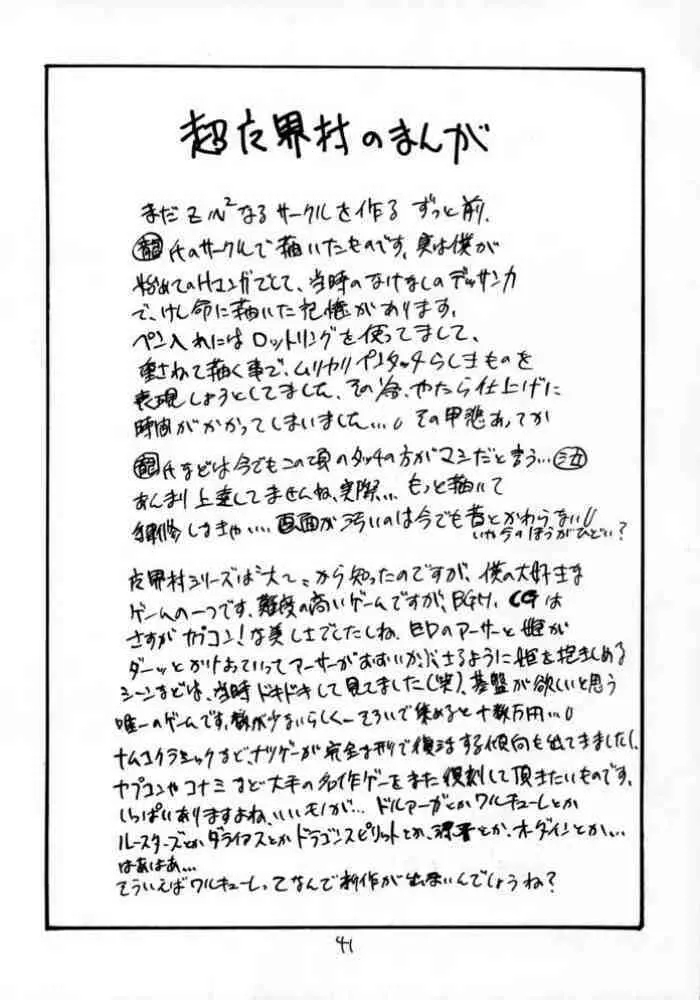 超广界村のまんが
まだZN²なるサークルを作る ずっと前、
氏のサークルで描いたものです。実は僕が
始めてのHマンガでして、当時のなけなしのデッサン力
で、けん命に描いた記憶があります。
ペン入れにはロットリングを使ってまして、
重ねて描く事で、ムリヤリペンタッチらしきものを
表現しようとしてました、その分、やたら仕上げに
時間がかかってしまいました…。その甲悲あってか
氏などは今でもこの頃のタッチの方がマシだと言う…
あんまり上達してませんね、実際… もっと描いて
修しなきゃ…. 画面が汚いのは今でも昔とかわらない
いや今のほうがひどい?
广界村シリーズは"大〜"から知ったのですが、僕の大好きな
ゲームの一つです。難度の高いゲームですが、BGM、CGは
さすがカプコン!な美しさでしたしね。EDのアーサーと姫が
ダーッとかけよっていってアーサーが
ように姫を抱きしめる
シーンなどは、当時ドキドキして見てました(笑)、基盤が欲しいと思う
唯一のゲームです。数が少ないらしくそろいで集めると十数万円…
ナムコクラシックなど、ナツゲーが完全な形で復活する傾向も出てきましたし、
カプコンやコナミなど大手の名作ゲーをまた復刻して頂きたいものです。
いっぱいありますよね、いいモノが… ドルアーガとかワルキューレとか
ルースターズとかダライアスとかドラゴンスピリットとか、源平とか、オーダインとか…
はあはあ…
そういえばワルキューレってなんで新作が出ないんでしょうね?
41